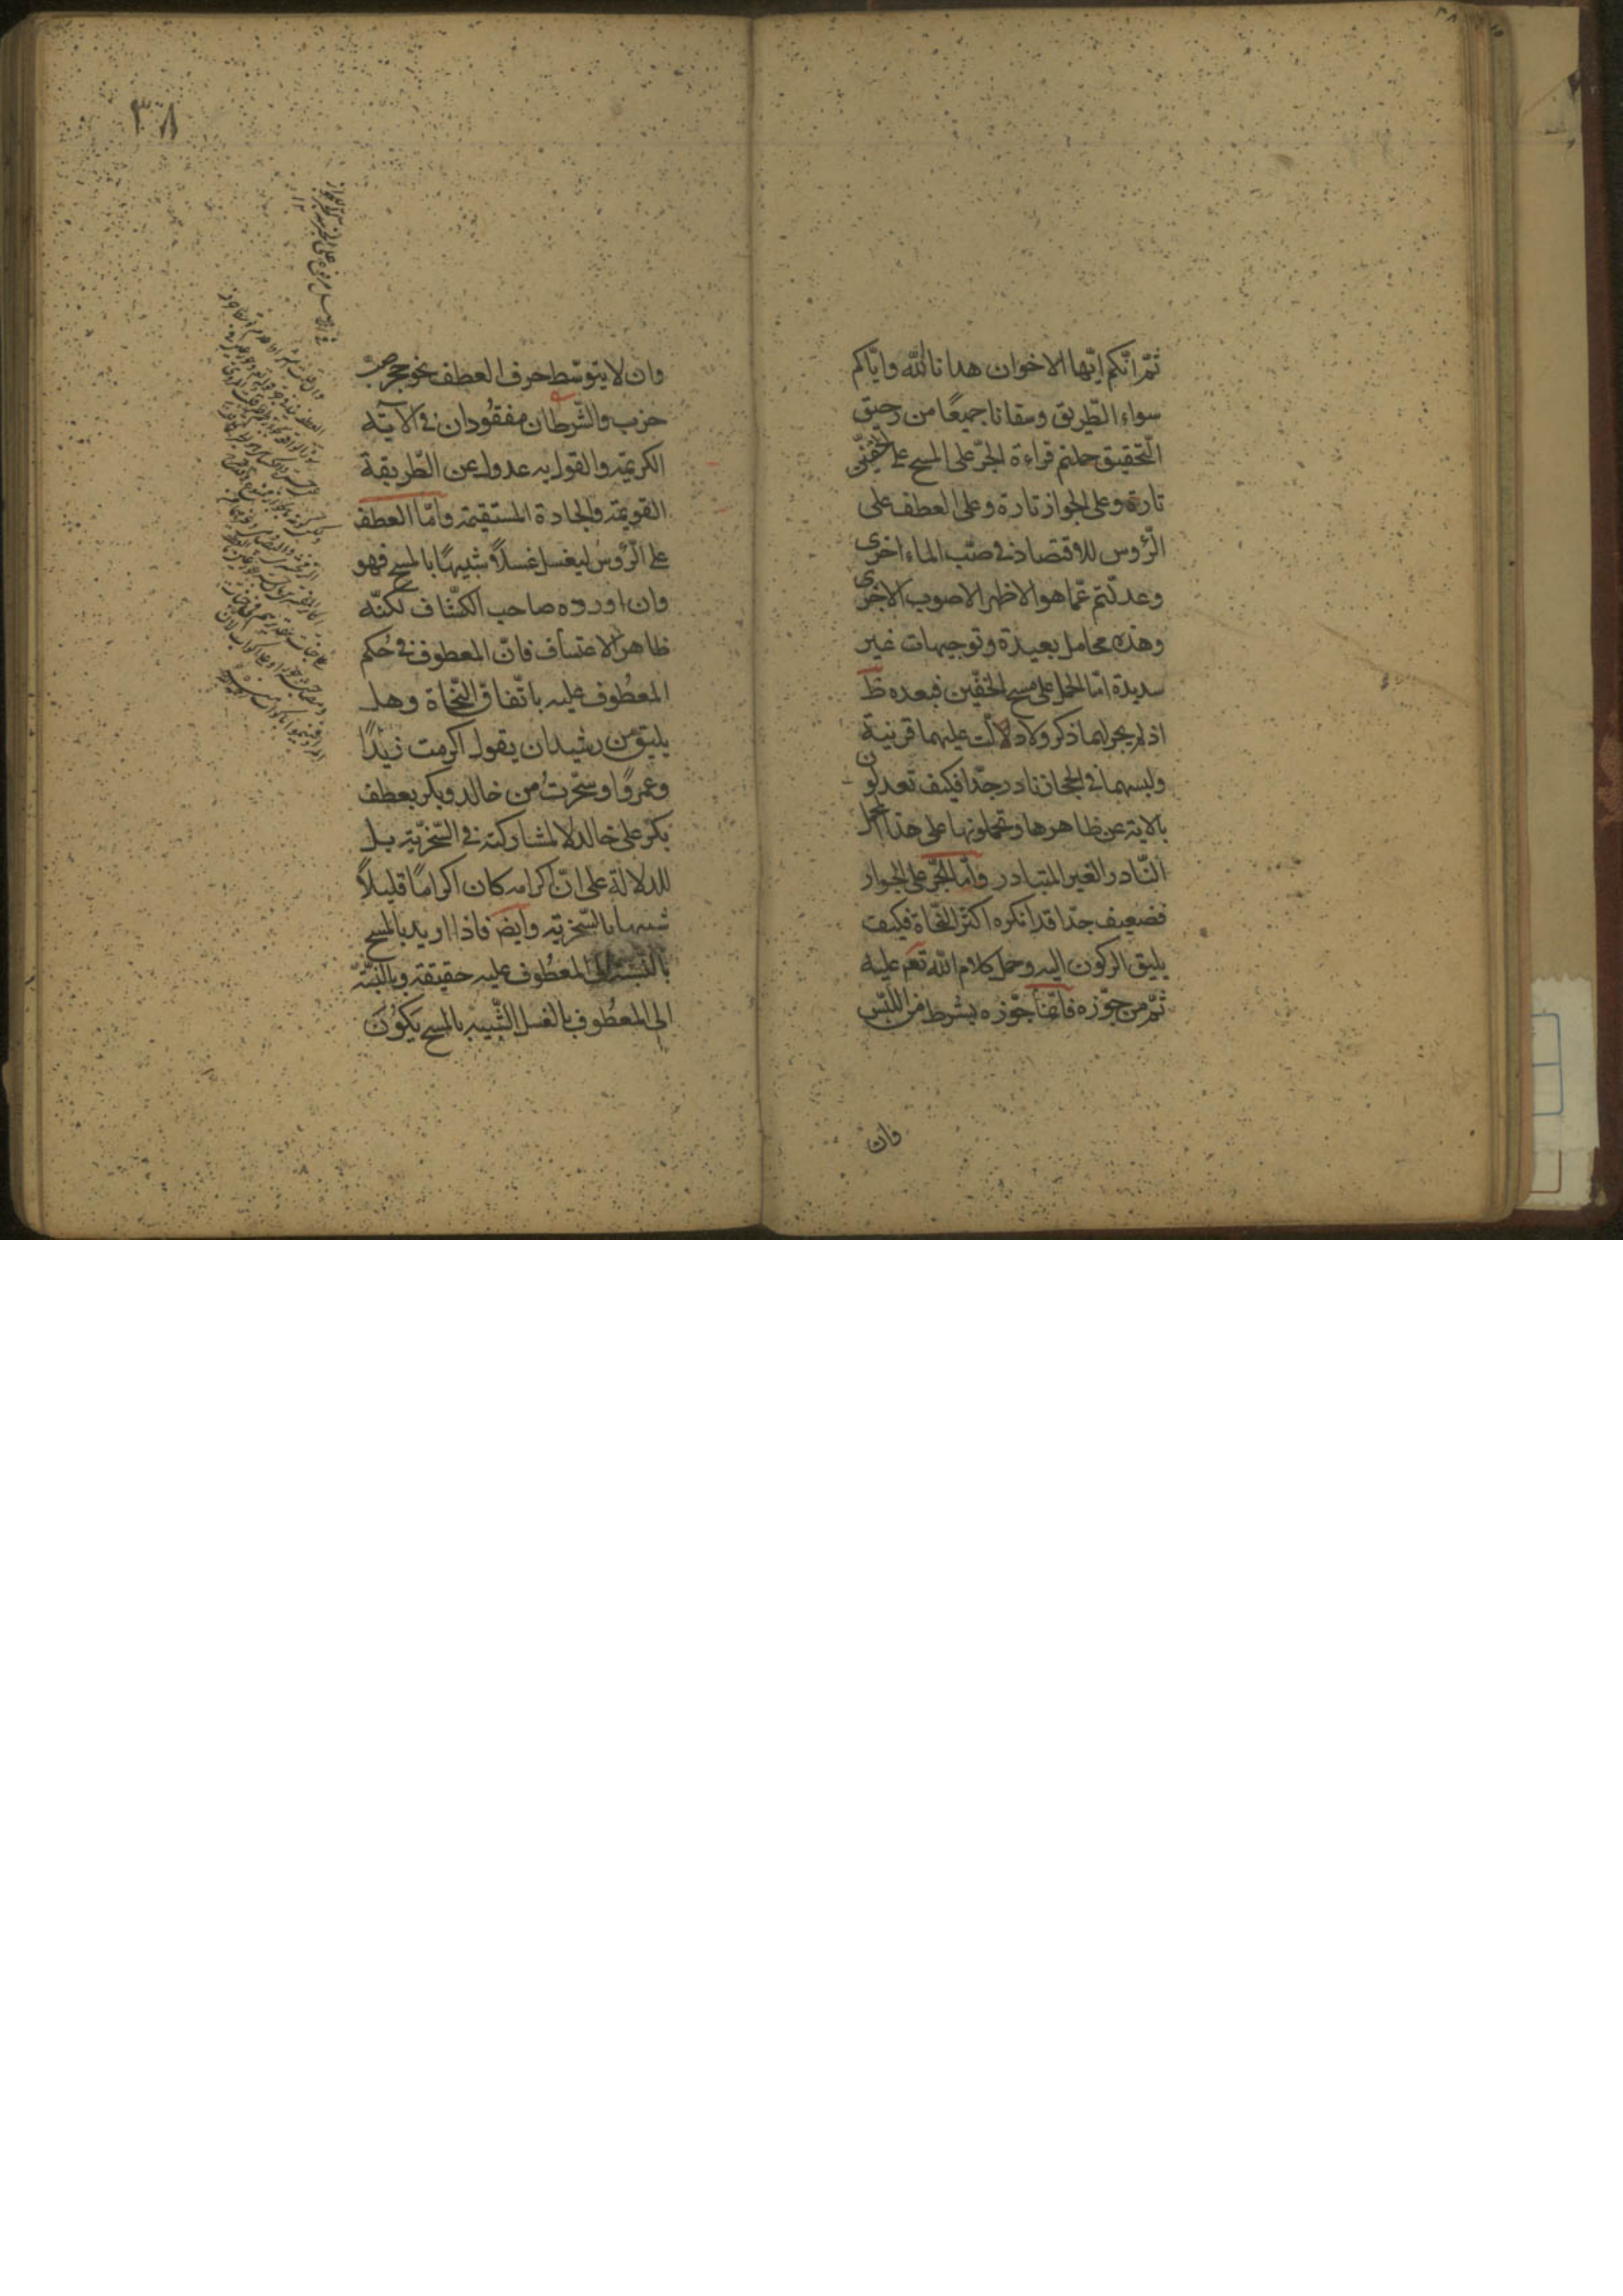 ثمّ انّكم ايّها الاخوان هدانا اللّه وايّاكم
سواء الطّريق وسقانا جميعًا من رحيق
التّحقيق حملتم قراءة الجرّ على المسح على الخفّين
تارة وعلى الجوار تارة وعلى العطف على
الرّؤس للاقتصاد فى صبّ الماء اخرى
وعدلتم عمّا هو الاظهر الاصوب الاحرى
وهذه محامل بعيدة وتوجيهات غير
سديدة امّا الحمل على مسح الخفّين فبعده ظ
اذ لم يجر لهما ذكر ولا دلالت عليهما قرينة
ولبسهما فى الحجاز نادر جدّا فكيف تعدلون
بالاية عن ظاهرها وتحملونها على هذا المحمل
النّادر الغير المتبادر وامّا الجرّ على الجوار
فضعيف جدّا قد انكره اكثر النّحاة فكيف
يليق الركون اليه وحمل كلام اللّه تعم عليه
ثمّ من جوّزه فانّما جوّزه بشرط امن اللّبس
وان
٣٨
وان لا يتوسّط حرف العطف نحو جحر ضبّ
خرب والشّرطان مفقودان فى الآية
الكريمة والقول به عدول عن الطّريقة
القويمة والجادة المستقيمة وامّا العطف
على الرّؤس ليغسل غسلاً شبيهًا بالمسح فهو
وان اورده صاحب الكشّاف لكنّه
ظاهر الاعتساف فانّ المعطوف فى حكم
المعطوف عليه باتّفاق النّحاة وهل
يليق من رشيد ان يقول اكرمت زيدًا
وعمروًا وسخرت من خالد وبكر بعطف
بكر على خالد لا لمشاركته فى السّخريّة بل
للدلالة على انّ اكرامه كان اكرامًا قليلاً
شبيها بالسّخريّة وايض فاذا اريد بالمسح
بالنّسبة الى المعطوف عليه حقيقة وبالنّسبة
الى المعطوف بالغسل الشّبيه بالمسح يكون